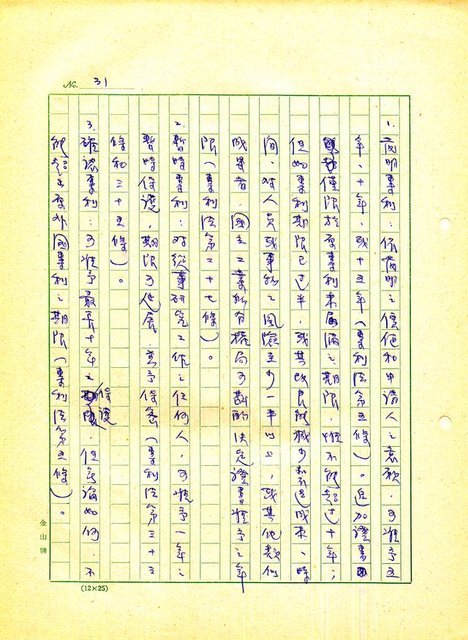 No. 31
1. 發明專利：依發明之價值和申請人之意欲，可准予五
年、十年、或十五年（專利法第五條）。追加證書
僅限於原專利未屆滿之期限，惟不能超過十年；
但如專利期限已過半，或其改良能減少製造成本、時
間、對人員或事物之風險至少一半以上，或其他類似
成果者，國立工業所有權局可斟酌決定證書准予之年
限（專利法第二十七條）。
2. 暫時專利：對從事研究工作之任何人，可准予一年之
暫時保護，期限可延展，並予保養（專利法第三十三
條和三十五條）。
3. 確認專利：可准予最長十年之保護，但無論如何，不
能超過原外國專利之期限（專利法第五條）。
(12×25)